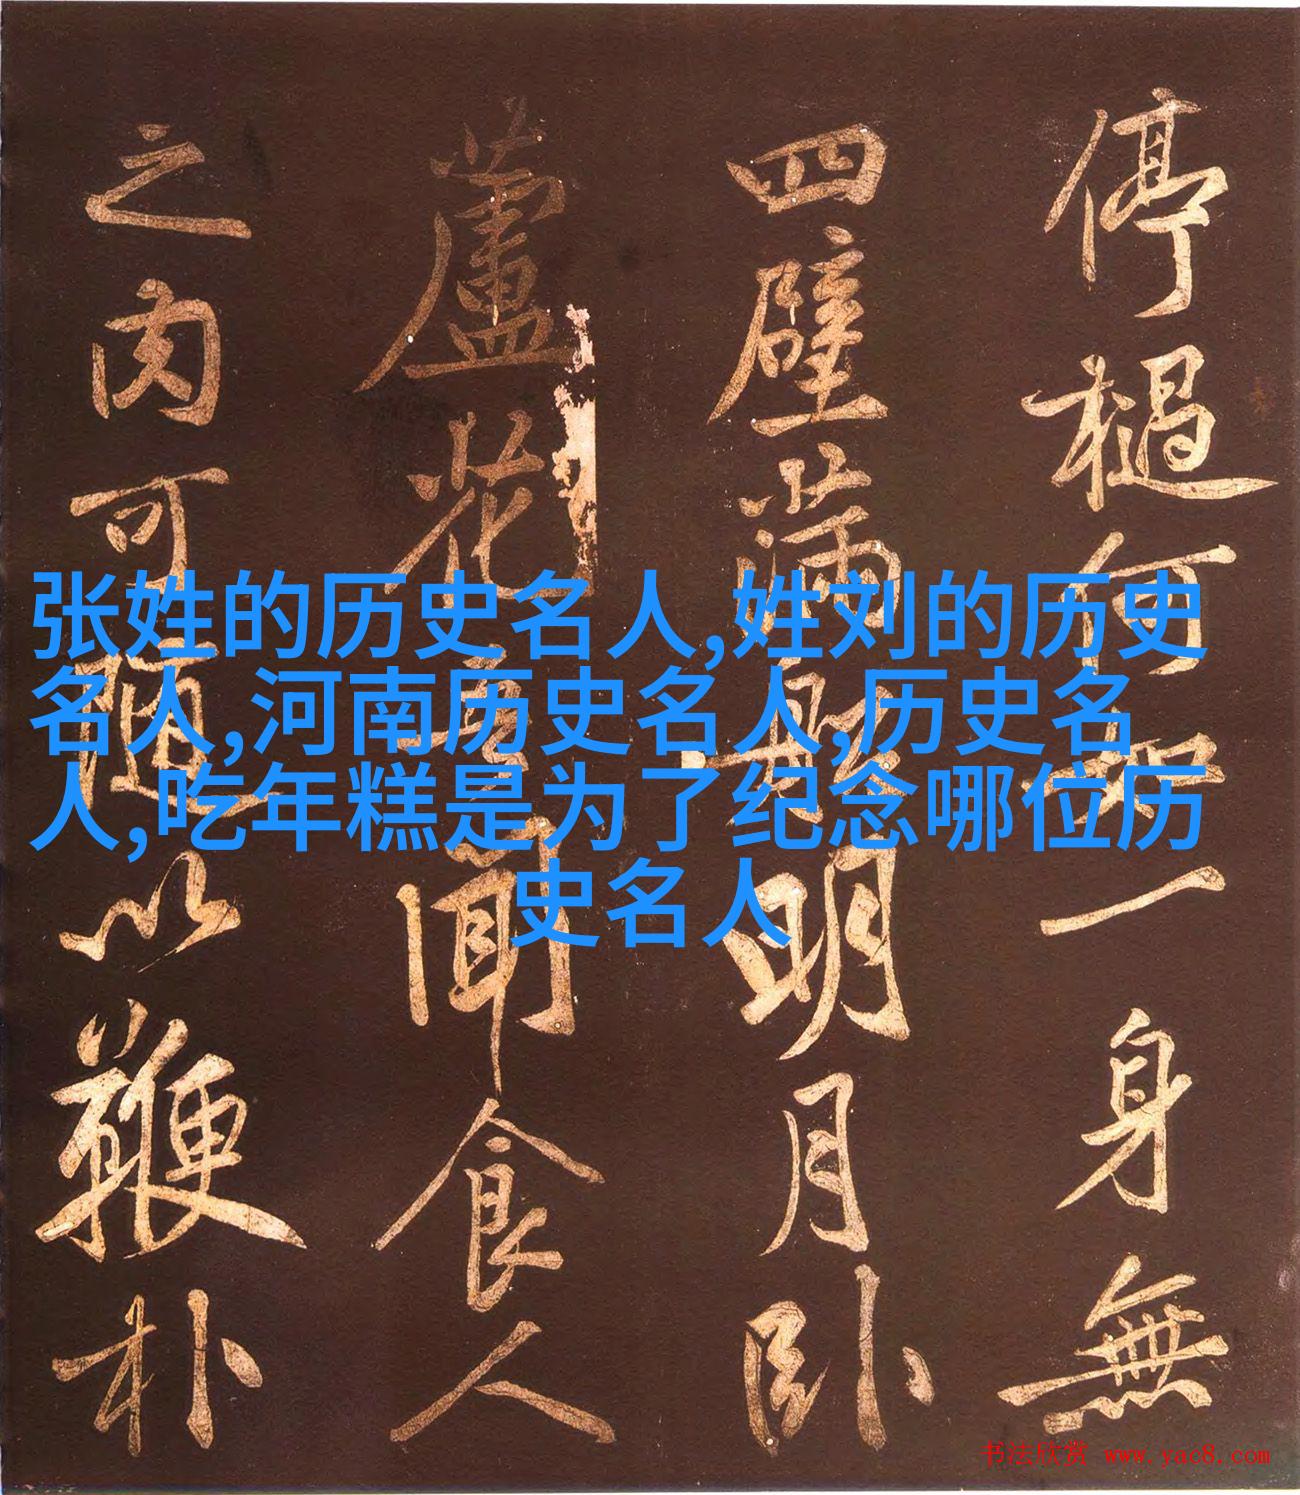 停檛何如一身無
四壁滿船明月卧
蘆花每聞食人
之肉可隨以鞭朴
张姓的历史名人,姓刘的历史
名人,河南历史名人,历史名
人,吃年糕是为了纪念哪位历
史名人
书法欣赏 www.yac8.com